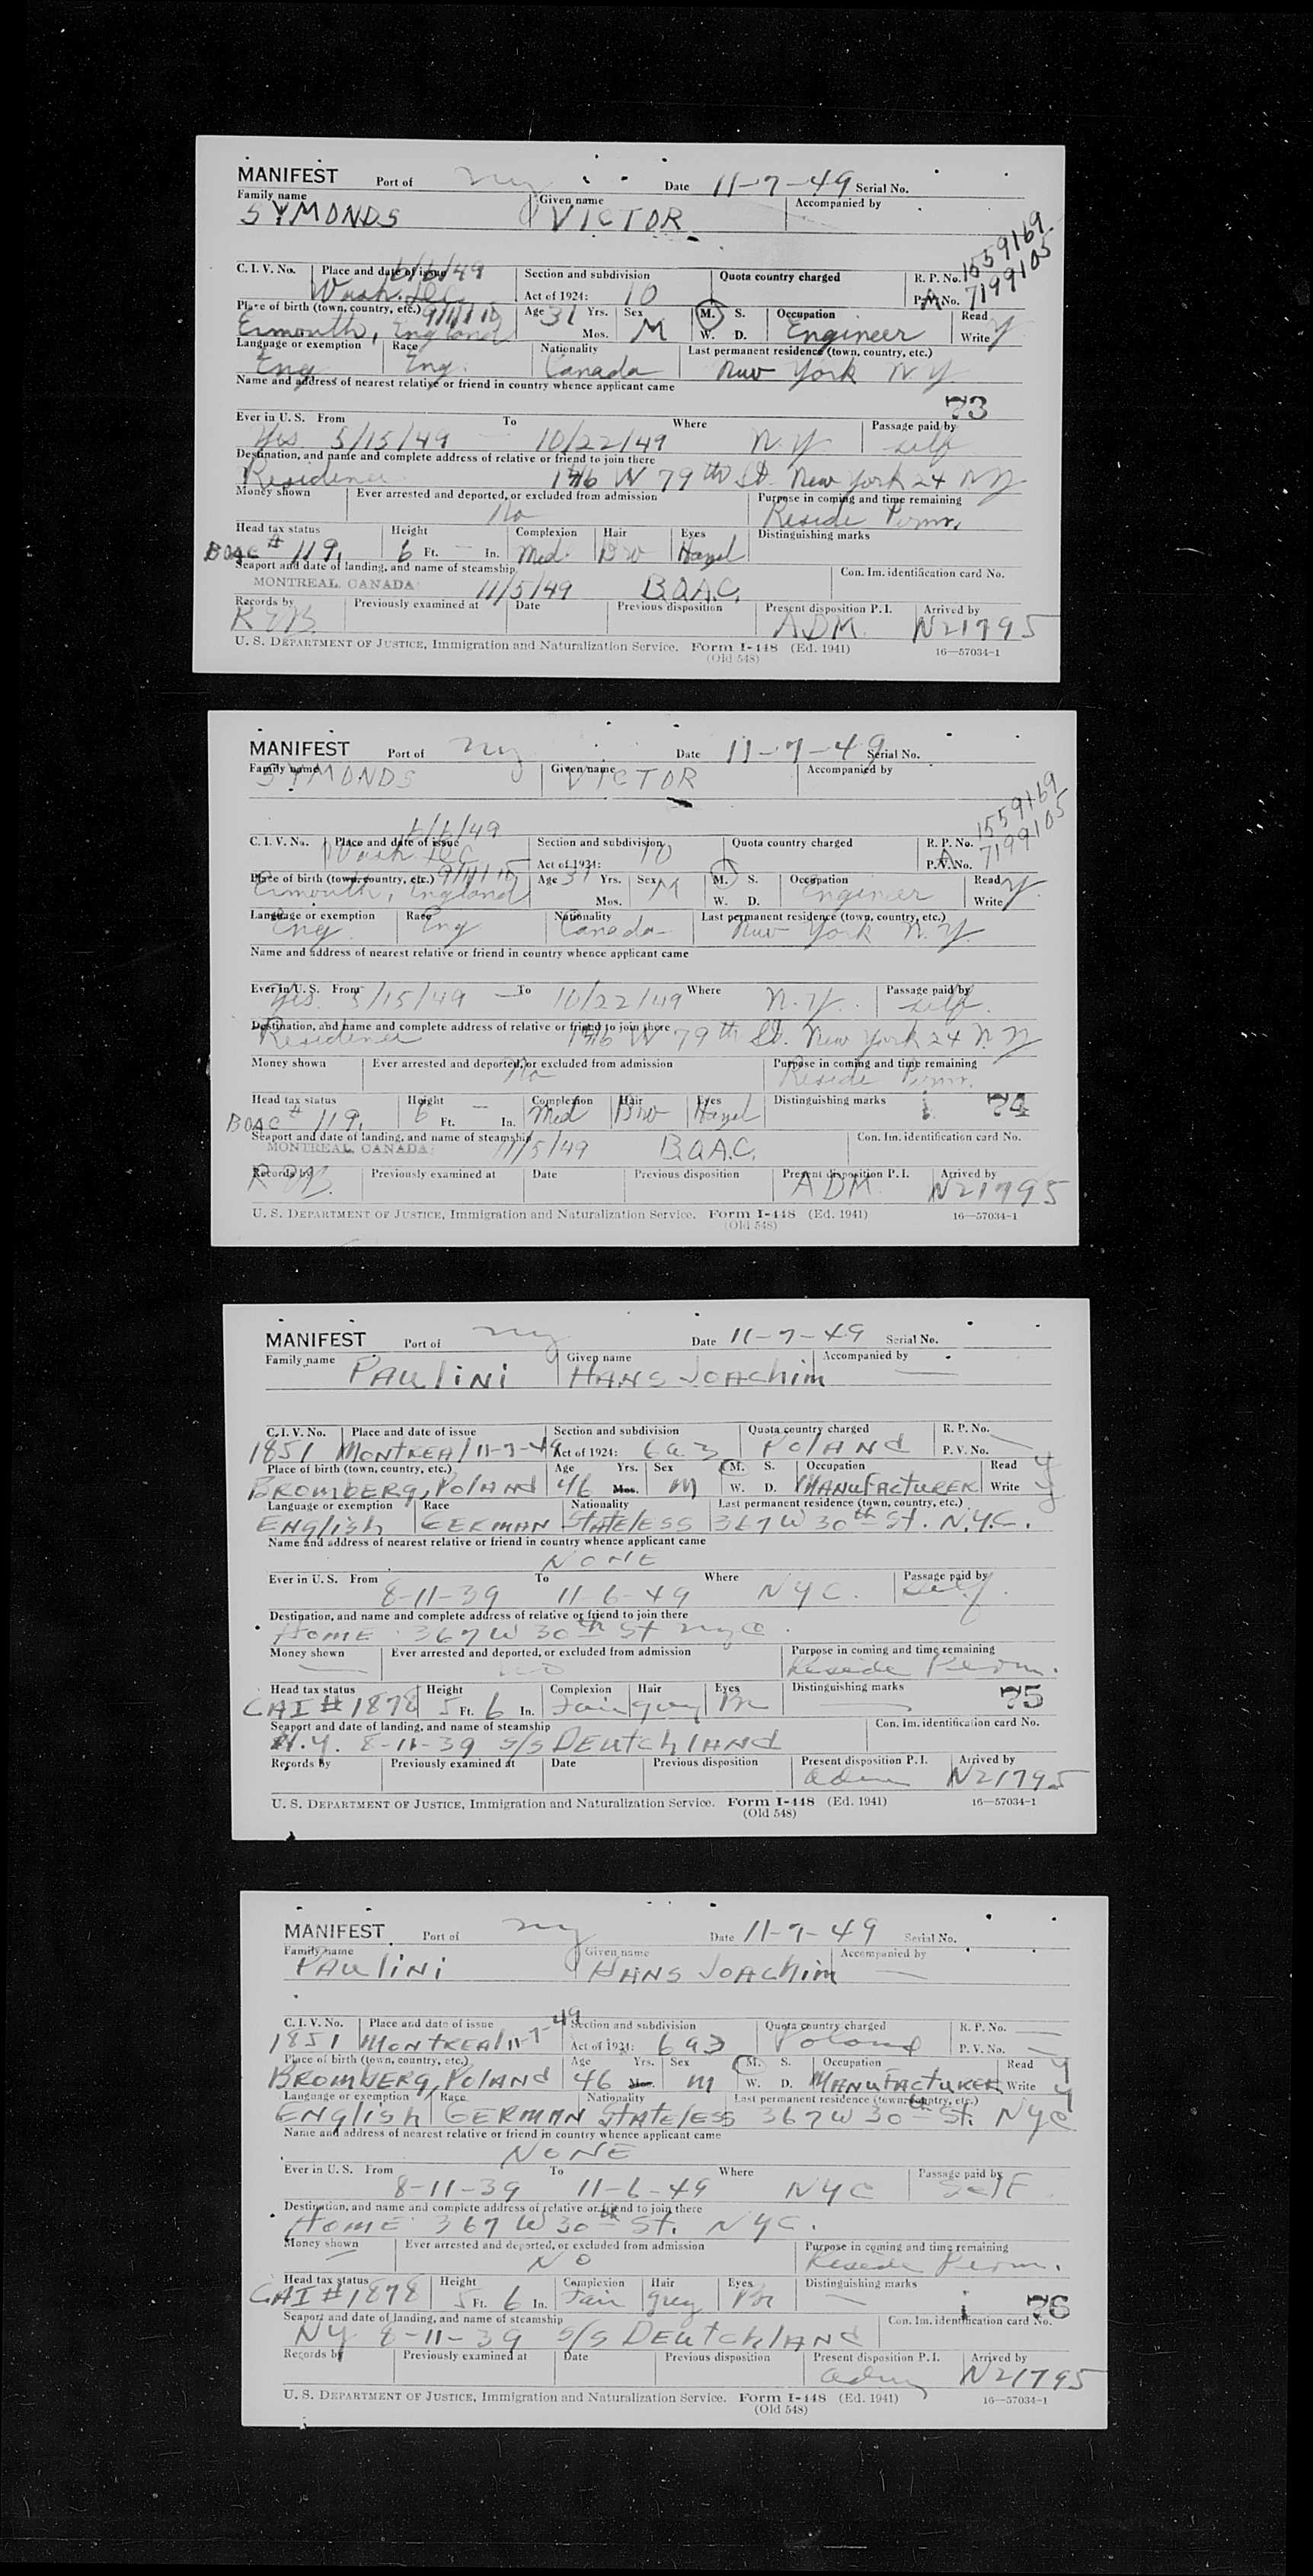 MANIFEST Port of NY Date 11-7-49 Serial No.
Family name Given name Accompanied by
SYMONDS VICTOR
1559169
C. I. V. No. Place and date of issue 6/6/49 Section and subdivision Quota country charged R. P. No.
Wash. DC Act of 1924: 10 P. V. No. A 7199105
Place of birth (town, country, etc.) Age 31 Yrs. Sex M. S. Occupation Read
Exmouth, England Mos. M W. D. Engineer Write Y
Language or exemption Race Nationality Last permanent residence (town, country, etc.)
Eng Eng. Canada New York N.Y.
Name and address of nearest relative or friend in country whence applicant came
73
Ever in U. S. From To Where Passage paid by
Yes 5/15/49 — 10/22/49 N.Y. self
Destination, and name and complete address of relative or friend to join there
Residence W 79th St. New York 24 NY
Money shown Ever arrested and deported, or excluded from admission Purpose in coming and time remaining
No Reside Perm.
Head tax status Height Complexion Hair Eyes Distinguishing marks
BOAC # 119, 6 Ft. — In. Med. Brw Hazel
Seaport and date of landing, and name of steamship Con. Im. identification card No.
MONTREAL, CANADA 11/5/49 B.O.A.C.
Records by Previously examined at Date Previous disposition Present disposition P. I. Arrived by
ADM. N21795
U. S. DEPARTMENT OF JUSTICE, Immigration and Naturalization Service. Form I-448 (Ed. 1941) 16—57034-1
(Old 548)
MANIFEST Port of NY Date 11-7-49 Serial No.
Family name Given name Accompanied by
SYMONDS VICTOR
1559169
C. I. V. No. Place and date of issue 6/6/49 Section and subdivision Quota country charged R. P. No.
Wash DC Act of 1924: 10 P. V. No. A 7199105
Place of birth (town, country, etc.) Age 31 Yrs. Sex M. S. Occupation Read
Exmouth, England Mos. M W. D. Engineer Write Y.
Language or exemption Race Nationality Last permanent residence (town, country, etc.)
Eng. Eng Canada New York N.Y.
Name and address of nearest relative or friend in country whence applicant came
Ever in U. S. From To Where Passage paid by
Yes 5/15/49 — 10/22/49 N.Y. self.
Destination, and name and complete address of relative or friend to join there
Residence W 79th St. New York 24 N.Y
Money shown Ever arrested and deported, or excluded from admission Purpose in coming and time remaining
No Reside Perm.
Head tax status Height Complexion Hair Eyes Distinguishing marks 74
BOAC # 119, 6 Ft. — In. Med Brw Hazel
Seaport and date of landing, and name of steamship Con. Im. identification card No.
MONTREAL, CANADA 11/5/49 B.O.A.C.
Records by Previously examined at Date Previous disposition Present disposition P. I. Arrived by
ADM N21795
U. S. DEPARTMENT OF JUSTICE, Immigration and Naturalization Service. Form I-448 (Ed. 1941) 16—57034-1
(Old 548)
MANIFEST Port of NY Date 11-7-49 Serial No.
Family name Given name Accompanied by
PAULINI HANS JOACHIM —
C. I. V. No. Place and date of issue Section and subdivision Quota country charged R. P. No. —
1851 MONTREAL 11-7-49 Act of 1924: 6a3 POLAND P. V. No.
Place of birth (town, country, etc.) Age Yrs. Sex M. S. Occupation Read Y
BROMBERG, POLAND 46 Mos. M W. D. MANUFACTURER Write Y
Language or exemption Race Nationality Last permanent residence (town, country, etc.)
ENGLISH GERMAN STATELESS 367 W 30th St. N.Y.C.
Name and address of nearest relative or friend in country whence applicant came
NONE
Ever in U. S. From To Where Passage paid by
8-11-39 11-6-49 NYC. Self.
Destination, and name and complete address of relative or friend to join there
HOME 367 W 30th St NYC.
Money shown Ever arrested and deported, or excluded from admission Purpose in coming and time remaining
— NO Reside Perm.
Head tax status Height Complexion Hair Eyes Distinguishing marks 75
CAI # 1878 5 Ft. 6 In. Fair grey Br —
Seaport and date of landing, and name of steamship Con. Im. identification card No.
N.Y. 8-11-39 S/S DEUTCHLAND
Records by Previously examined at Date Previous disposition Present disposition P. I. Arrived by
adm N21795
U. S. DEPARTMENT OF JUSTICE, Immigration and Naturalization Service. Form I-448 (Ed. 1941) 16—57034-1
(Old 548)
MANIFEST Port of NY Date 11-7-49 Serial No.
Family name Given name Accompanied by
PAULINI HANS JOACHIM —
C. I. V. No. Place and date of issue Section and subdivision Quota country charged R. P. No. —
1851 MONTREAL 11-7-49 Act of 1924: 6a3 Poland P. V. No. —
Place of birth (town, country, etc.) Age Yrs. Sex M. S. Occupation Read Y
BROMBERG, POLAND 46 Mos. M W. D. MANUFACTURER Write Y
Language or exemption Race Nationality Last permanent residence (town, country, etc.)
ENGLISH GERMAN STATELESS 367 W 30th St. NYC
Name and address of nearest relative or friend in country whence applicant came
NONE
Ever in U. S. From To Where Passage paid by
8-11-39 11-6-49 NYC SELF
Destination, and name and complete address of relative or friend to join there
HOME 367 W 30th St. NYC.
Money shown Ever arrested and deported, or excluded from admission Purpose in coming and time remaining
— NO Reside Perm.
Head tax status Height Complexion Hair Eyes Distinguishing marks
CAI # 1878 5 Ft. 6 In. Fair grey Br — 76
Seaport and date of landing, and name of steamship Con. Im. identification card No.
NY 8-11-39 S/S DEUTCHLAND
Records by Previously examined at Date Previous disposition Present disposition P. I. Arrived by
adm N21795
U. S. DEPARTMENT OF JUSTICE, Immigration and Naturalization Service. Form I-448 (Ed. 1941) 16—57034-1
(Old 548)